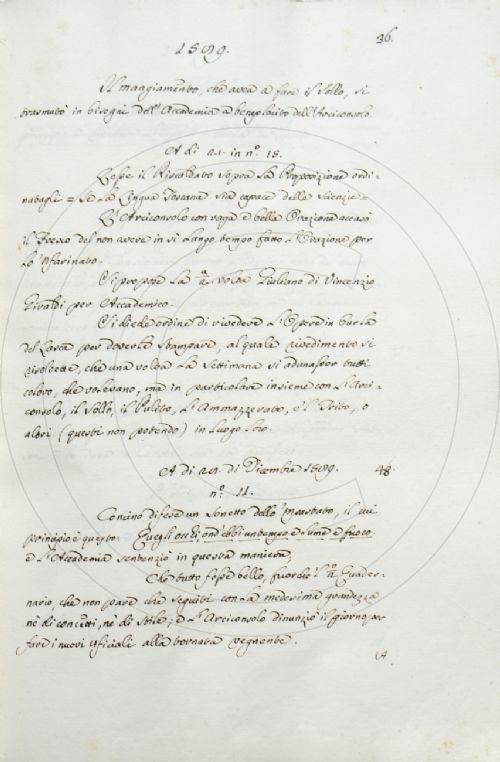 36.
1589.
Il mangiamento, che avea a fare il Sollo, si
trasmutò in bisogni dell'Accademia a beneplacito dell'Arciconsolo.
A di 21. in nº. 15.
Lesse il Riscaldato sopra la Proposizione ordi=
natagli = Se la Lingua Toscana sia capace delle Scienzie =
L'Arciconsolo con vaga e bella Orazione accusò
il Fresco del non avere in sì lungo tempo fatto l'Orazione per
lo 'Nfarinato.
Si propose la 2ª volta Giuliano di Vincenzio
Giraldi per Accademico.
Si diede ordine di rivedere l'Opere in burla
del Lasca per doverle stampare, al quale rivedimento si
risolvette, che una volta la Settimana si adunasson tutti
coloro, che volevano, ma in particolare insieme con l'Arci=
consolo, il Sollo, il Pulito, l'Ammazzerato, e 'l Trito, o
altri (questi non potendo) in luogo loro.
A di 29. di Dicembre 1589. 48.
nº. 11.
Concino difese un Sonetto dello 'Mpastato, il cui
principio è questo: Quegli occhi, ond'ebbi un tempo e lume e fuoco:
e l'Accademia sentenziò in questa maniera,
Che tutto fosse bello, fuorchè 'l 2º Quader=
nario, che non pare che seguiti con la medesima grandezza
nè di concetti, nè di stile; e l'Arciconsolo dinunziò il giorno per
fare i nuovi uficiali alla tornata vegnente.
A